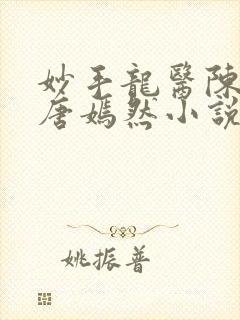 妙手龍醫陳
唐嫣然小說
姚振普